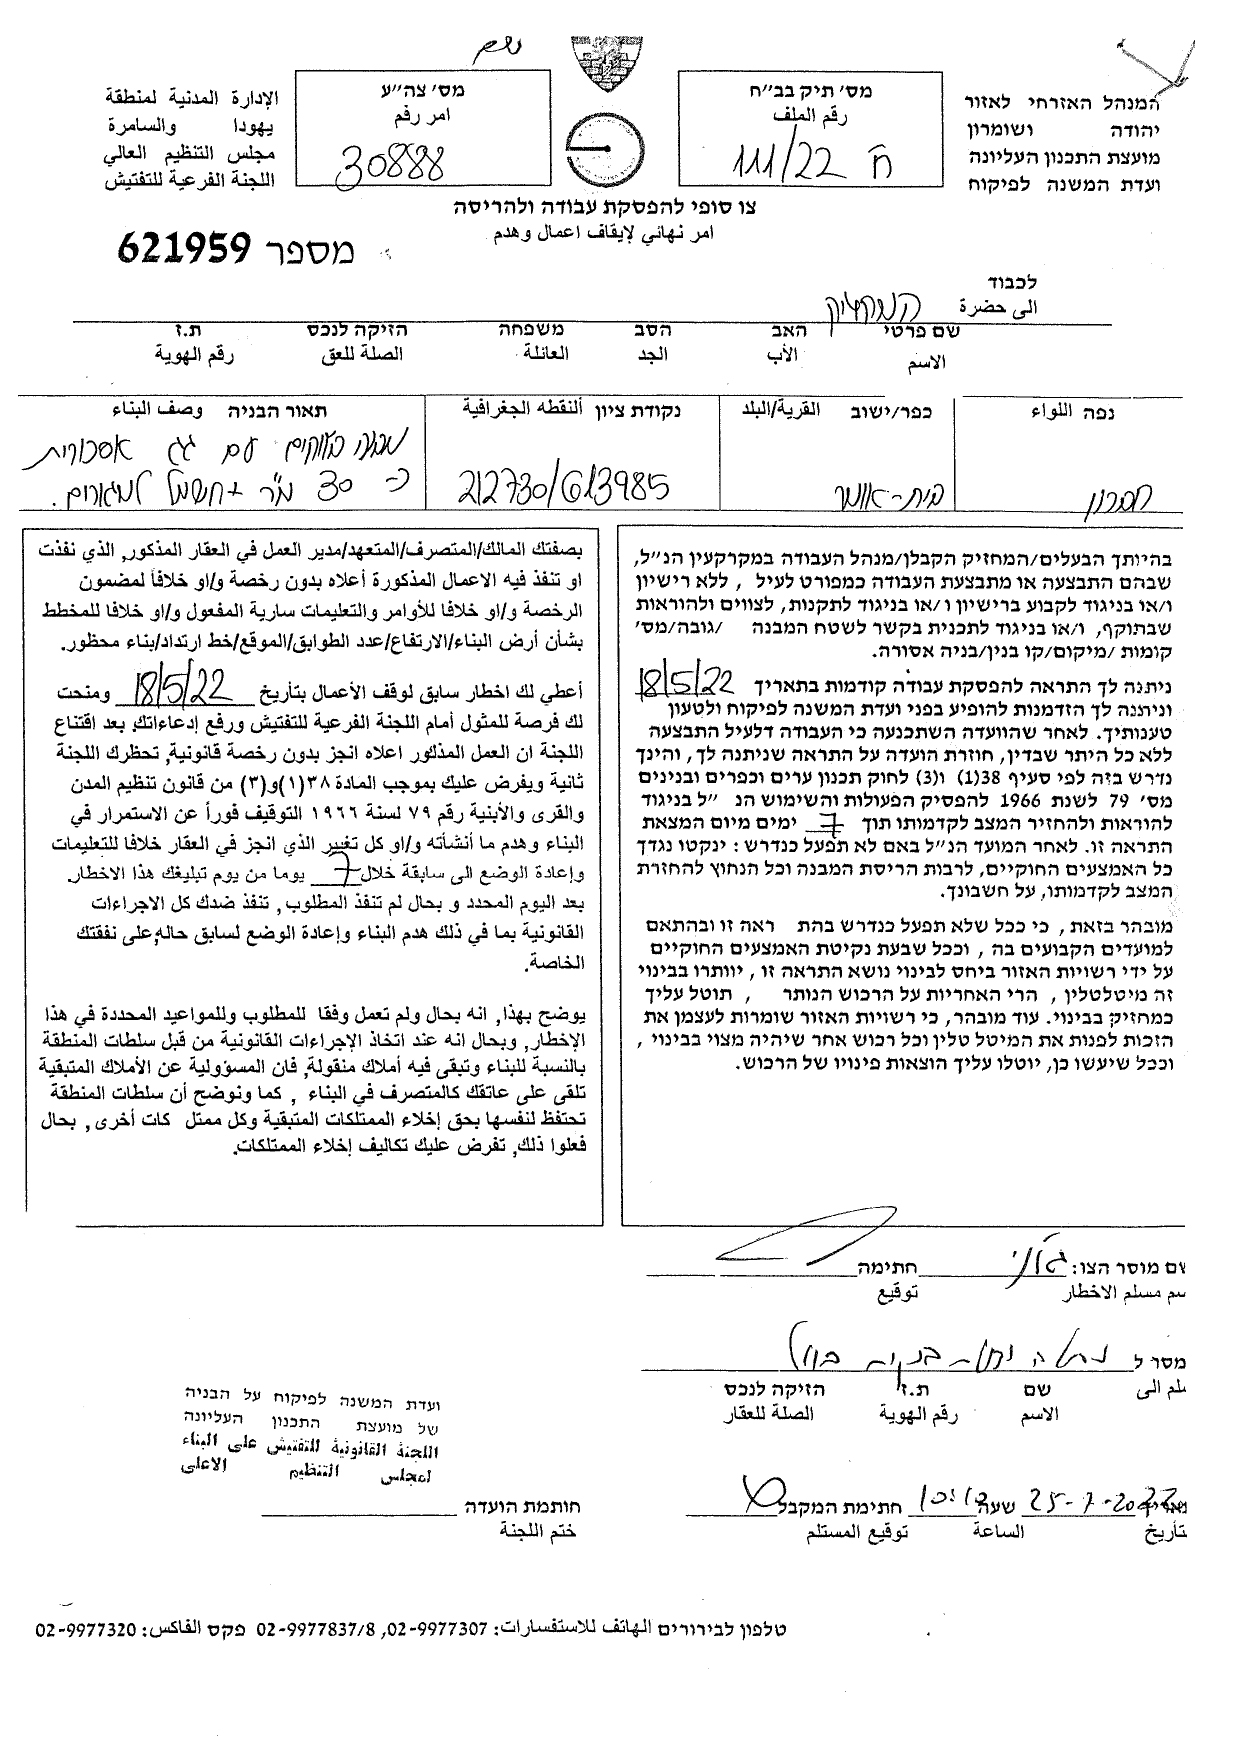 המנהל האזרחי לאזור
יהודה ושומרון
מועצת התכנון העליונה
ועדת המשנה לפיקוח
מס׳ תיק בב״ח
رقم الملف
ח 111/22
מס׳ צה״ע
امر رقم
30888
الإدارة المدنية لمنطقة
يهودا والسامرة
مجلس التنظيم العالي
اللجنة الفرعية للتفتيش
צו סופי להפסקת עבודה ולהריסה
امر نهائي لإيقاف اعمال وهدم
מספר 621959
לכבוד
الى حضرة המחזיק
שם פרטי האב הסב משפחה הזיקה לנכס ת.ז
الاسم الأب الجد العائلة الصلة للعق رقم الهوية
נפה اللواء
חברון
כפר/ישוב القرية/البلد
בית-אומר
נקודת ציון ألنقطه الجغرافية
212730/613985
תאור הבניה وصف البناء
מבנה בלוקים עם גג אסכורית
כ- 30 מ"ר + חשמל למגורים.
בהיותך הבעלים/המחזיק הקבלן/מנהל העבודה במקרקעין הנ״ל,
שבהם התבצעה או מתבצעת העבודה כמפורט לעיל , ללא רישיון
ו/או בניגוד לקבוע ברישיון ו/או בניגוד לתקנות, לצווים ולהוראות
שבתוקף, ו/או בניגוד לתכנית בקשר לשטח המבנה /גובה/מס׳
קומות /מיקום/קו בנין/בניה אסורה.
ניתנה לך התראה להפסקת עבודה קודמות בתאריך 18/5/22
וניתנה לך הזדמנות להופיע בפני ועדת המשנה לפיקוח ולטעון
טענותיך. לאחר שהוועדה השתכנעה כי העבודה דלעיל התבצעה
ללא כל היתר שבדין, חוזרת הועדה על התראה שניתנה לך, והינך
נדרש בזה לפי סעיף 38(1) ו(3) לחוק תכנון ערים וכפרים ובנינים
מס׳ 79 לשנת 1966 להפסיק הפעולות והשימוש הנ ״ל בניגוד
להוראות ולהחזיר המצב לקדמותו תוך 7 ימים מיום המצאת
התראה זו. לאחר המועד הנ״ל באם לא תפעל כנדרש : ינקטו נגדך
כל האמצעים החוקיים, לרבות הריסת המבנה וכל הנחוץ להחזרת
המצב לקדמותו, על חשבונך.
מובהר בזאת , כי ככל שלא תפעל כנדרש בהת ראה זו ובהתאם
למועדים הקבועים בה , וככל שבעת נקיטת האמצעים החוקיים
על ידי רשויות האזור ביחס לבינוי נושא התראה זו , יוותרו בבינוי
זה מיטלטלין , הרי האחריות על הרכוש הנותר , תוטל עליך
כמחזיק בבינוי. עוד מובהר, כי רשויות האזור שומרות לעצמן את
הזכות לפנות את המיטל טלין וכל רכוש אחר שיהיה מצוי בבינוי ,
וככל שיעשו כן, יוטלו עליך הוצאות פינויו של הרכוש.
بصفتك المالك/المتصرف/المتعهد/مدير العمل في العقار المذكور, الذي نفذت
او تنفذ فيه الاعمال المذكورة أعلاه بدون رخصة و/او خلافاً لمضمون
الرخصة و/او خلافا للأوامر والتعليمات سارية المفعول و/او خلافا للمخطط
بشأن أرض البناء/الارتفاع/عدد الطوابق/الموقع/خط ارتداد/بناء محظور.
أعطي لك اخطار سابق لوقف الأعمال بتأريخ 18/5/22 ومنحت
لك فرصة للمثول أمام اللجنة الفرعية للتفتيش ورفع إدعاءاتك. بعد اقتناع
اللجنة ان العمل المذكور اعلاه انجز بدون رخصة قانونية, تحظرك اللجنة
ثانية ويفرض عليك بموجب المادة ٣٨(١)و(٣) من قانون تنظيم المدن
والقرى والأبنية رقم ٧٩ لسنة ١٩٦٦ التوقيف فورأ عن الاستمرار في
البناء وهدم ما أنشأته و/او كل تغيير الذي انجز في العقار خلافا للتعليمات
وإعادة الوضع الى سابقة خلال 7 يوما من يوم تبليغك هذا الاخطار.
بعد اليوم المحدد و بحال لم تنفذ المطلوب, تنفذ ضدك كل الاجراءات
القانونية بما في ذلك هدم البناء وإعادة الوضع لسابق حاله, على نفقتك
الخاصة.
يوضح بهذا, انه بحال ولم تعمل وفقا للمطلوب وللمواعيد المحددة في هذا
الإخطار, وبحال انه عند اتخاذ الإجراءات القانونية من قبل سلطات المنطقة
بالنسبة للبناء وتبقى فيه أملاك منقولة, فان المسؤولية عن الأملاك المتبقية
تلقى على عاتقك كالمتصرف في البناء , كما ونوضح أن سلطات المنطقة
تحتفظ لنفسها بحق إخلاء الممتلكات المتبقية وكل ممتل كات أخرى, بحال
فعلوا ذلك, تفرض عليك تكاليف إخلاء الممتلكات.
שם מוסר הצו: חתימה
سم مسلم الاخطار توقيع
מסר ל
سلم الى שם ת.ז הזיקה לנכס
الاسم رقم الهوية الصلة للعقار
25-7-2022 שעה 10:10 חתימת המקבל
تأريخ الساعة توقيع المستلم
ועדת המשנה לפיקוח על הבניה
של מועצת התכנון העליונה
اللجنة القانونية للتفتيش على البناء
لمجلس التنظيم الاعلى
חותמת הועדה
ختم اللجنة
טלפון לבירורים الهاتف للاستفسارات: 02-9977307, 02-9977837/8 פקס الفاكس: 02-9977320